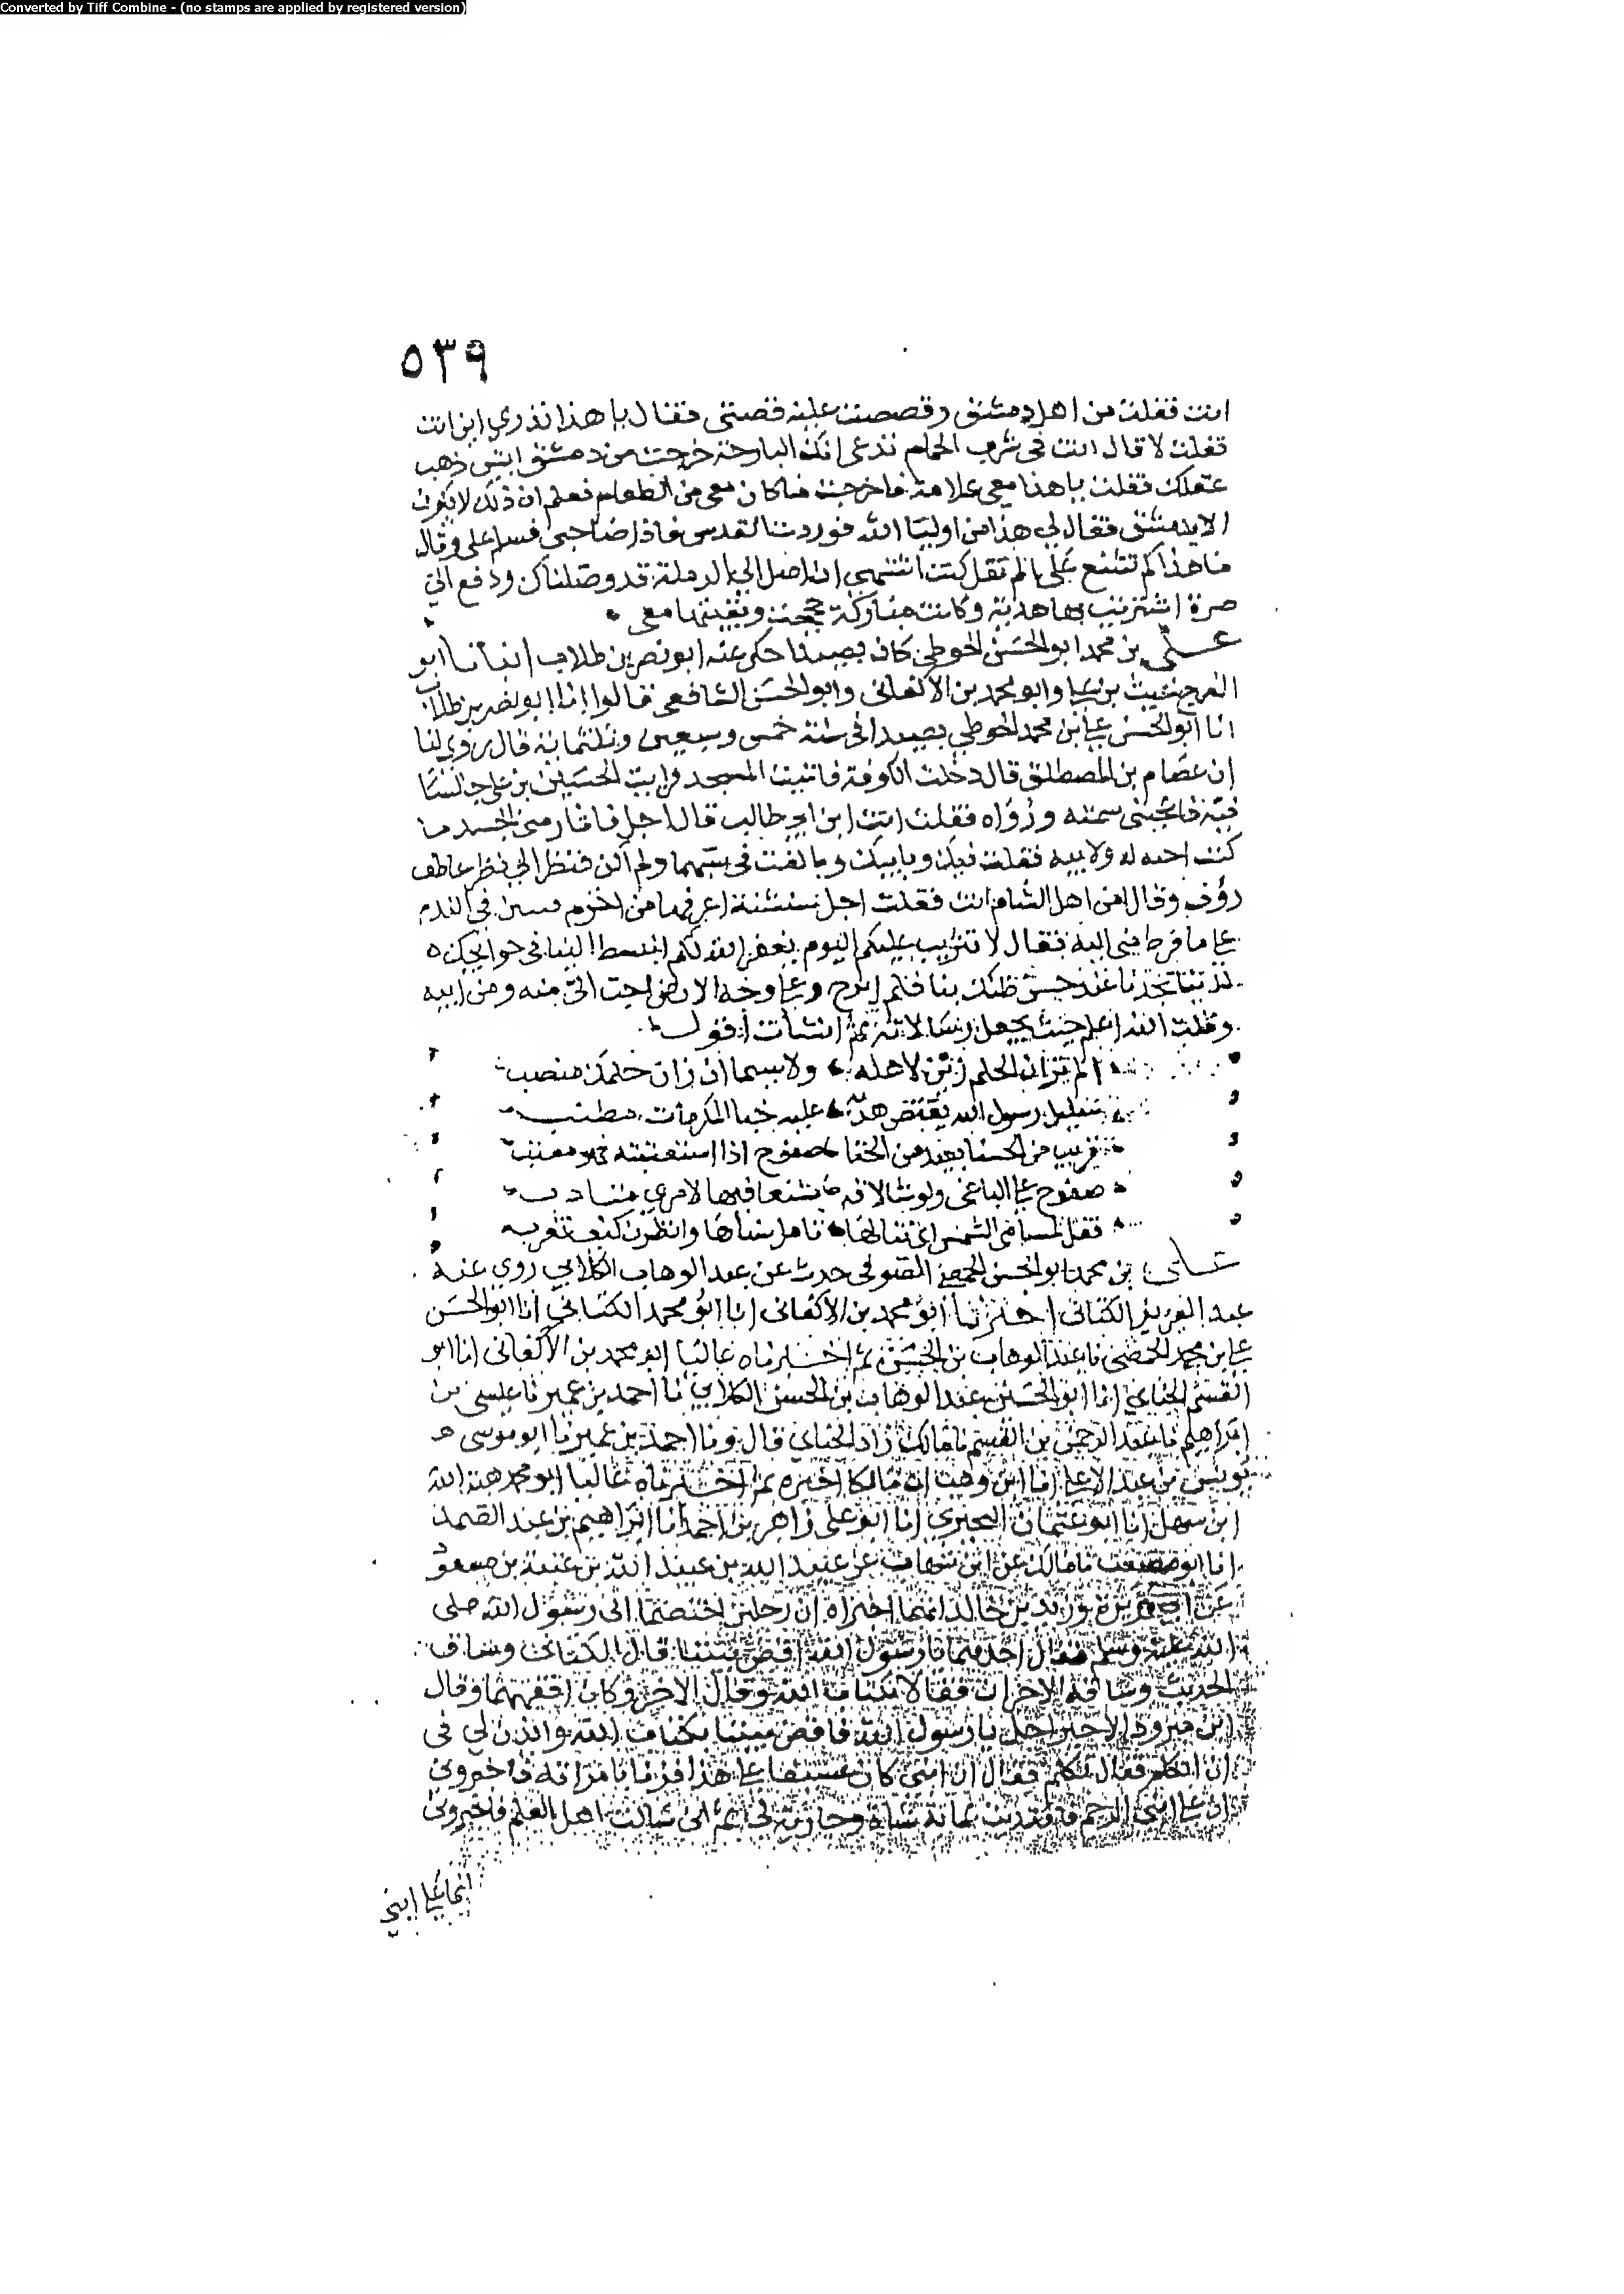 Converted by Tiff Combine - (no stamps are applied by registered version)
٥٣٩
انت فقلت من اهل دمشق وقصصت عليه قصتي فقال يا هذا تدري اين انت
فقلت لا قال انت في شرب الحمام تدعي انك البارحة خرجت من دمشق ايش ذهب
عقلك فقلت يا هذا معي علامة فاخرجت ما كان معي من الطعام فعلم ان ذلك لا يكون
الا بدمشق فقال لي هذا من اوليا الله فوردت القدس فاذا صاحبي فسلم علي وقال
ما هذا لم تشنع علي الم تقل كنت اشتهي ان اصل الي الرملة قد وصلناك ودفع الي
صرة اشتريت بها هدية وكانت مباركة حججت وبقيتها معي
علي بن محمد ابو الحسن الحوطي كان بصيدا حكي عنه ابو نصر بن طلاب انبانا ابو
الفرج غيث بن علي وابو محمد بن الاكفاني وابو الحسن الشافعي قالوا انا ابو نصر بن طلاب
انا ابو الحسن علي بن محمد الحوطي بصيدا في سنة خمس وسبعين وثلثمائة قال روي لنا
ان عصام بن المصطلق قال دخلت الكوفة فاتيت المسجد فرايت الحسين بن علي جالسا
فيه فاعجبني سمته ورؤاه فقلت انت ابن ابي طالب قال اجل فاثار مني الحسد ما
كنت اجنه له ولابيه فقلت فيك وبابيك وبالغت في سبهما ولم اكن فنظر الي نظر عاطف
رؤف وقال امن اهل الشام انت فقلت اجل شنشنة اعرفها من اخزم في الندم
علي ما فرط مني اليه فقال لا تثريب عليكم اليوم يغفر الله لكم انبسط الينا في حوايجك
لديتنا تجدنا عند حسن ظنك بنا فلم ابرح وعلي وجه الارض احب الي منه ومن ابيه
وقلت الله اعلم حيث يجعل رسالاته ثم انشات اقول
الم تر ان الحلم زين لاهله ولا سيما ان زان حلمك منصب
سليل رسول الله يقتص هديه عليه خبا المكرمات مطنب
قريب من الحسنا بعيد من الخنا صفوح اذا استعتبته فهو معتب
صفوح علي الباغي ولو شا لاقه
فقل لمسامي الشمس اني تنالها تامل سناها وانظرن كيف تغرب
علي بن محمد ابو الحسن الحمصي الصوفي حدث عن عبد الوهاب الكلابي روي عنه
عبد العزيز الكتاني اخبرنا ابو محمد بن الاكفاني انا ابو محمد الكتاني انا ابو الحسن
علي بن محمد الحمصي نا عبد الوهاب بن الحسن ثم اخبرناه عاليا ابو محمد بن الاكفاني انا ابو
القسم الحناي انا ابو الحسين عبد الوهاب بن الحسن الكلابي نا احمد بن عمير نا عيسي بن
ابراهيم نا عبد الرحمن بن القسم نا مالك زاد الحناي قال ونا احمد بن عمير نا ابو موسي هو
يونس بن عبد الاعلي انا ابن وهب ان مالكا اخبره ثم اخبرناه عاليا ابو محمد هبة الله
ابن سهل انا ابو عثمان البحيري انا ابو علي زاهر بن احمد انا ابراهيم بن عبد الصمد
انا ابو مصعب نا مالك عن ابن شهاب عن عبيد الله بن عبد الله بن عتبة بن مسعود
عن ابي هريرة وزيد بن خالد انهما اخبراه ان رجلين اختصما الى رسول الله صلى
الله عليه وسلم فقال احدهما يا رسول الله اقض بيننا قال الكتاني وساق
الحديث وساقه الاخران فقالا بكتاب الله وقال الاخر وكان افقههما وقال
ابن اجل يا رسول الله فاقض بيننا بكتاب الله وائذن لي في
ان اتكلم فقال تكلم فقال ان ابني كان عسيفا علي هذا فزنا بامراته فاخبروني
ان علي ابني الرجم فافتديت بمائة شاة وجارية لي ثم اني سالت اهل العلم فاخبروني
انما علي ابني